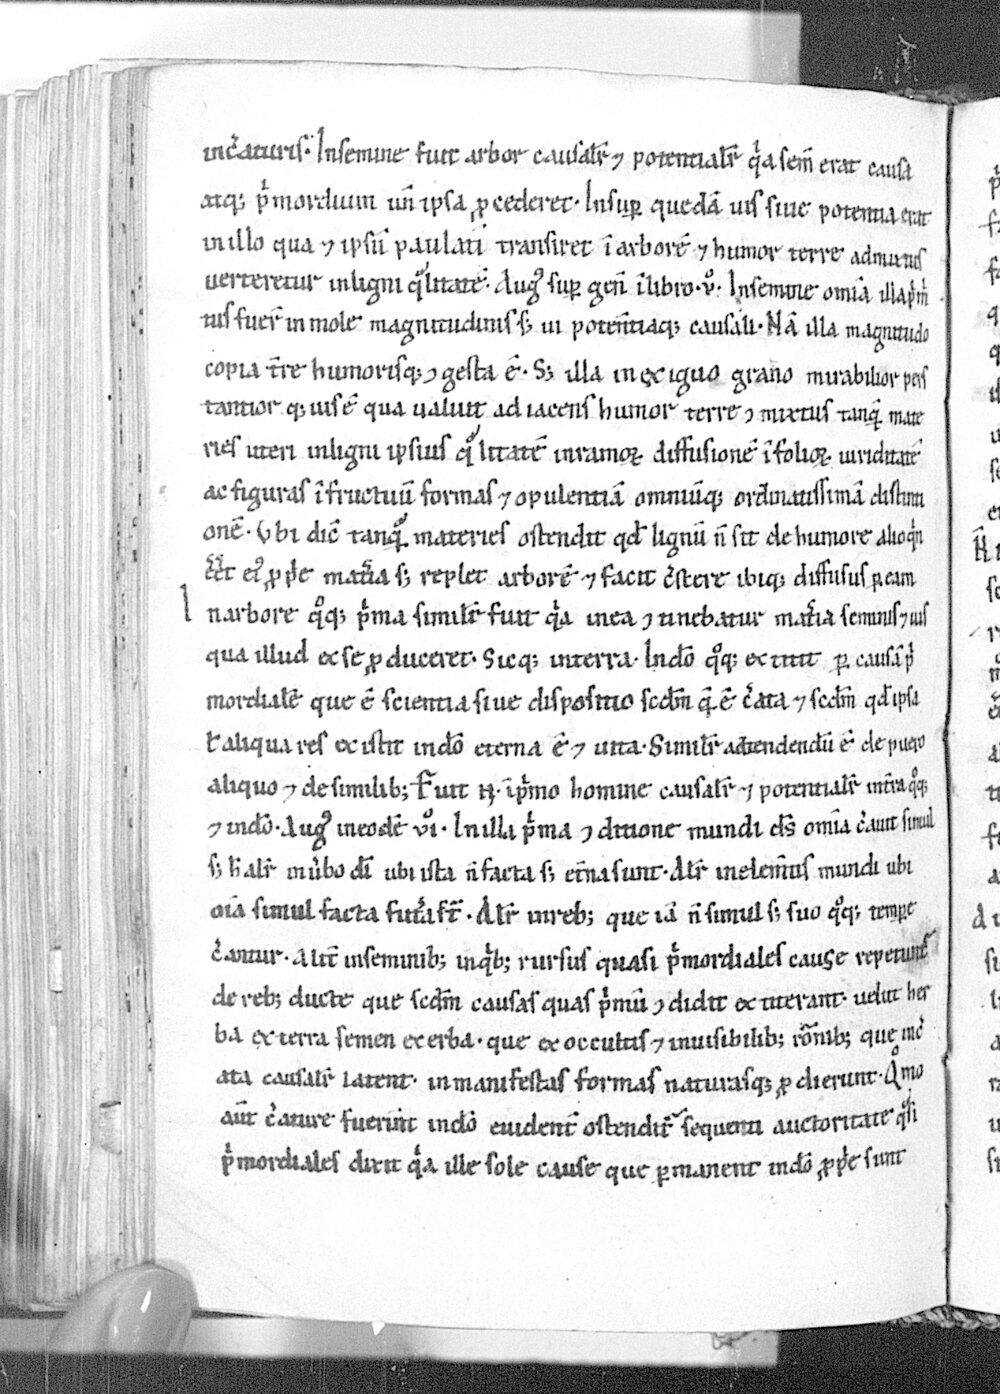 incᷓaturis. Insemine fuit arbor causalr̄ ⁊ potentialr̄ qͥa sem̄ erat causa
atq; pͥmordium un̄ ipsa ꝓcederet. Insuꝑ quedā uis siue potentia erat
in illo qua ⁊ ipsū paulatī transiret ī arborē ⁊ humor terre admixtus
uerteretur inligni qͣlitatē. Augꝰ suꝑ gen̄ ī libro .vͦ. Insemine om̄ia illa pͥmi
tus fuer̄ in mole magnitudinis s; ui potentiaq; causali. Nā illa magnitudo
copia tr̄e humorisq; ꝯgesta ē. S; illa in exiguo grano mirabilior prͣs
tantior q; uis ē qua ualuit adiacens humor terre ꝯmixtus tanqͣ mate
ries uteri inligni ipsius qͣlitatē inramoꝝ diffusionē ī folioꝝ uiriditatē
ac figuras ī fructuū formas ⁊ opulentiā omniūq; ordinatissimā distincti
onē. Vbi dic̄ tanqͣ materies ostendit qd̄ lignū n̄ sit de humore alioqͥn
eiꝰ ꝓpͥe mat̄ia s; replet arborē ⁊ facit cͥscere ibiq; diffusus ꝑ eam
In arbore qͦq; pͥma similr̄ fuit qͥa inea ꝯtinebatur mat̄ia seminis ⁊ uis
qua illud ex se ꝓduceret. Sicq; interra. Indō qͦq; extitit ꝑ causā pͥ
mordialē que ē scientia siue dispositio scd̄m q̄ ē cͥata ⁊ scd̄m qd̄ ipsa
ł aliqua res existit indō eterna ē ⁊ uita. Similr̄ adtendendū ē de puero
aliquo ⁊ de similib; Fuit .n. ī pͥmo homine causalr̄ ⁊ potentialr̄ intr̄a qͦq;
⁊ indō. Augꝰ ineodē .vͦi. In illa pͥma ꝯditione mundi ds̄ om̄ia cͥauit simul
s; alr̄ inuͥbo dī ubi ista n̄ facta s; et̄na sunt. Alr̄ inelem̄tis mundi ubi
oīa simul facta futͣ a st̄. Alr̄ inreb; que iā n̄ simul s; suo qͦq; tempr̄e
cͥantur. Alit̄ inseminib; inqͥb; rursus quasi pͥmordiales cause repetunt̄
de reb; ducte que scd̄m causas quas pͥmū ꝯdidit extiterant. uelut her
ba exterra semen exerba. que exoccultis ⁊ inuisibilib; rōnib; que incͥ
ata causalr̄ latent. inmanifestas formas naturasq; ꝓdierunt. Qͦmo
aūt cͥature fuerint indō euident̄ ostendit̄ sequenti auctoritate qͣsi
pͥmordiales dixit qͥa ille sole cause que ꝑmanent indō ꝓpͥe sunt